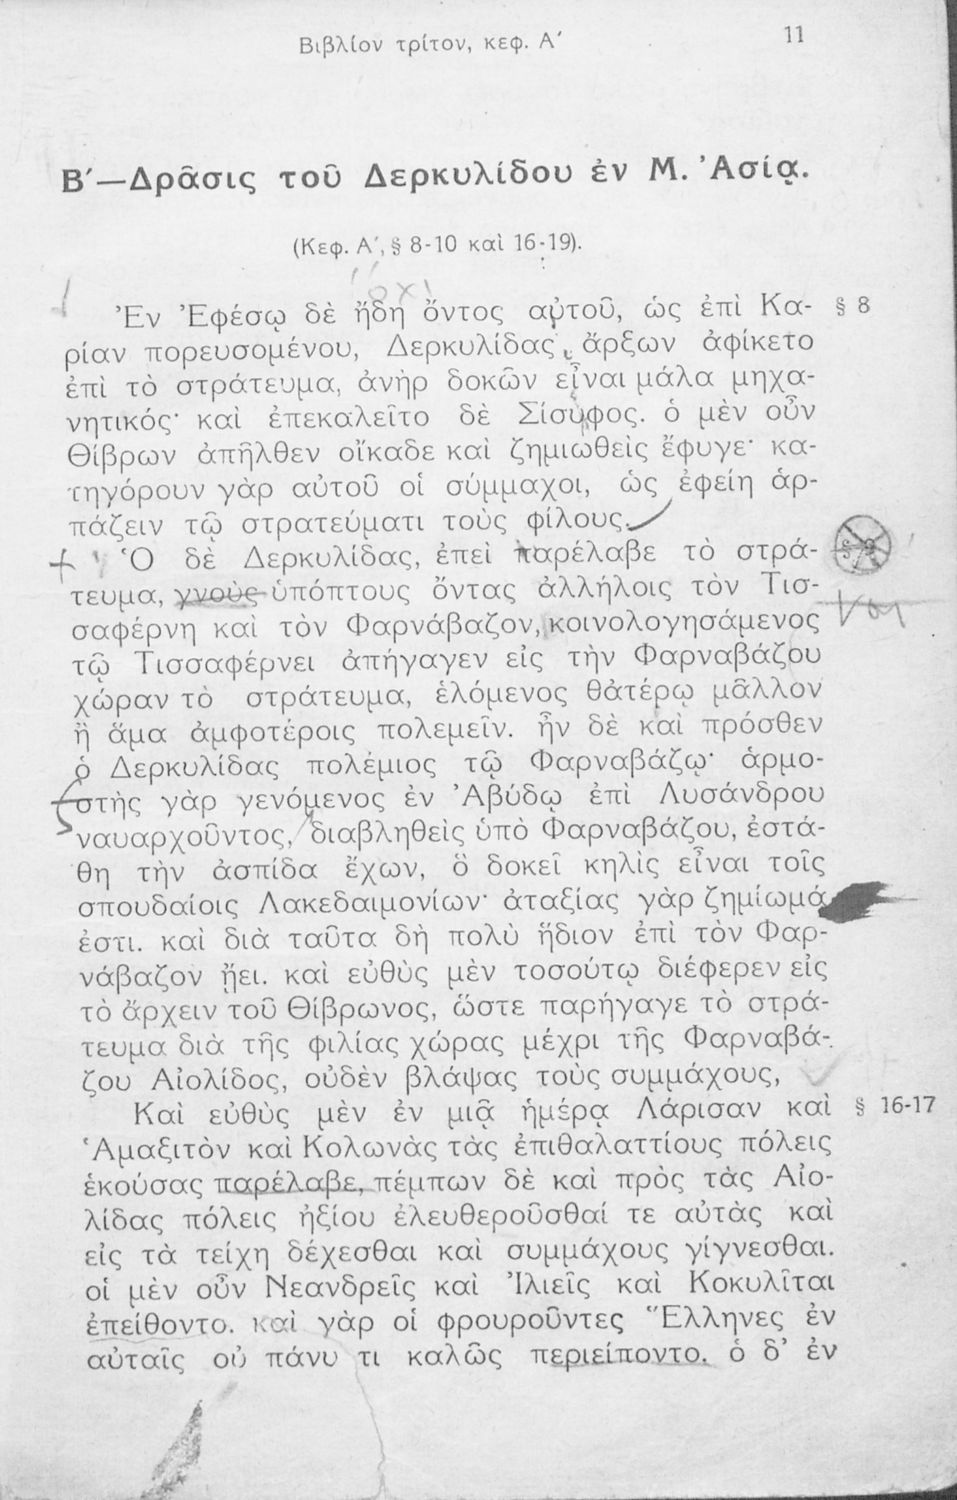 Βιβλίον τρίτον, κεφ. Α΄
11
Β΄—Δρᾶσις τοῦ Δερκυλίδου ἐν Μ. Ἀσίᾳ.
(Κεφ. Α΄, § 8-10 καὶ 16-19).
ὄχι
Ἐν Ἐφέσῳ δὲ ἤδη ὄντος αὐτοῦ, ὡς ἐπὶ Κα- § 8
ρίαν πορευσομένου, Δερκυλίδας ἄρξων ἀφίκετο
ἐπὶ τὸ στράτευμα, ἀνὴρ δοκῶν εἶναι μάλα μηχα-
νητικός· καὶ ἐπεκαλεῖτο δὲ Σίσυφος. ὁ μὲν οὖν
Θίβρων ἀπῆλθεν οἴκαδε καὶ ζημιωθεὶς ἔφυγε· κα-
τηγόρουν γὰρ αὐτοῦ οἱ σύμμαχοι, ὡς ἐφείη ἁρ-
πάζειν τῷ στρατεύματι τοὺς φίλους.
Ὁ δὲ Δερκυλίδας, ἐπεὶ παρέλαβε τὸ στρά- § 9
τευμα, γνοὺς ὑπόπτους ὄντας ἀλλήλοις τὸν Τισ-
σαφέρνη καὶ τὸν Φαρνάβαζον, κοινολογησάμενος
τῷ Τισσαφέρνει ἀπήγαγεν εἰς τὴν Φαρναβάζου
χώραν τὸ στράτευμα, ἑλόμενος θἀτέρῳ μᾶλλον
ἢ ἅμα ἀμφοτέροις πολεμεῖν. ἦν δὲ καὶ πρόσθεν
ὁ Δερκυλίδας πολέμιος τῷ Φαρναβάζῳ· ἁρμο-
στὴς γὰρ γενόμενος ἐν Ἀβύδῳ ἐπὶ Λυσάνδρου
ναυαρχοῦντος, διαβληθεὶς ὑπὸ Φαρναβάζου, ἐστά-
θη τὴν ἀσπίδα ἔχων, ὃ δοκεῖ κηλὶς εἶναι τοῖς
σπουδαίοις Λακεδαιμονίων· ἀταξίας γὰρ ζημίωμά
ἐστι. καὶ διὰ ταῦτα δὴ πολὺ ἥδιον ἐπὶ τὸν Φαρ-
νάβαζον ᾔει. καὶ εὐθὺς μὲν τοσούτῳ διέφερεν εἰς
τὸ ἄρχειν τοῦ Θίβρωνος, ὥστε παρήγαγε τὸ στρά-
τευμα διὰ τῆς φιλίας χώρας μέχρι τῆς Φαρναβά-
ζου Αἰολίδος, οὐδὲν βλάψας τοὺς συμμάχους,
Καὶ εὐθὺς μὲν ἐν μιᾷ ἡμέρᾳ Λάρισαν καὶ § 16-17
Ἁμαξιτὸν καὶ Κολωνὰς τὰς ἐπιθαλαττίους πόλεις
ἑκούσας παρέλαβε, πέμπων δὲ καὶ πρὸς τὰς Αἰο-
λίδας πόλεις ἠξίου ἐλευθεροῦσθαί τε αὐτὰς καὶ
εἰς τὰ τείχη δέχεσθαι καὶ συμμάχους γίγνεσθαι.
οἱ μὲν οὖν Νεανδρεῖς καὶ Ἰλιεῖς καὶ Κοκυλῖται
ἐπείθοντο. καὶ γὰρ οἱ φρουροῦντες Ἕλληνες ἐν
αὐταῖς οὐ πάνυ τι καλῶς περιείποντο. ὁ δ' ἐν